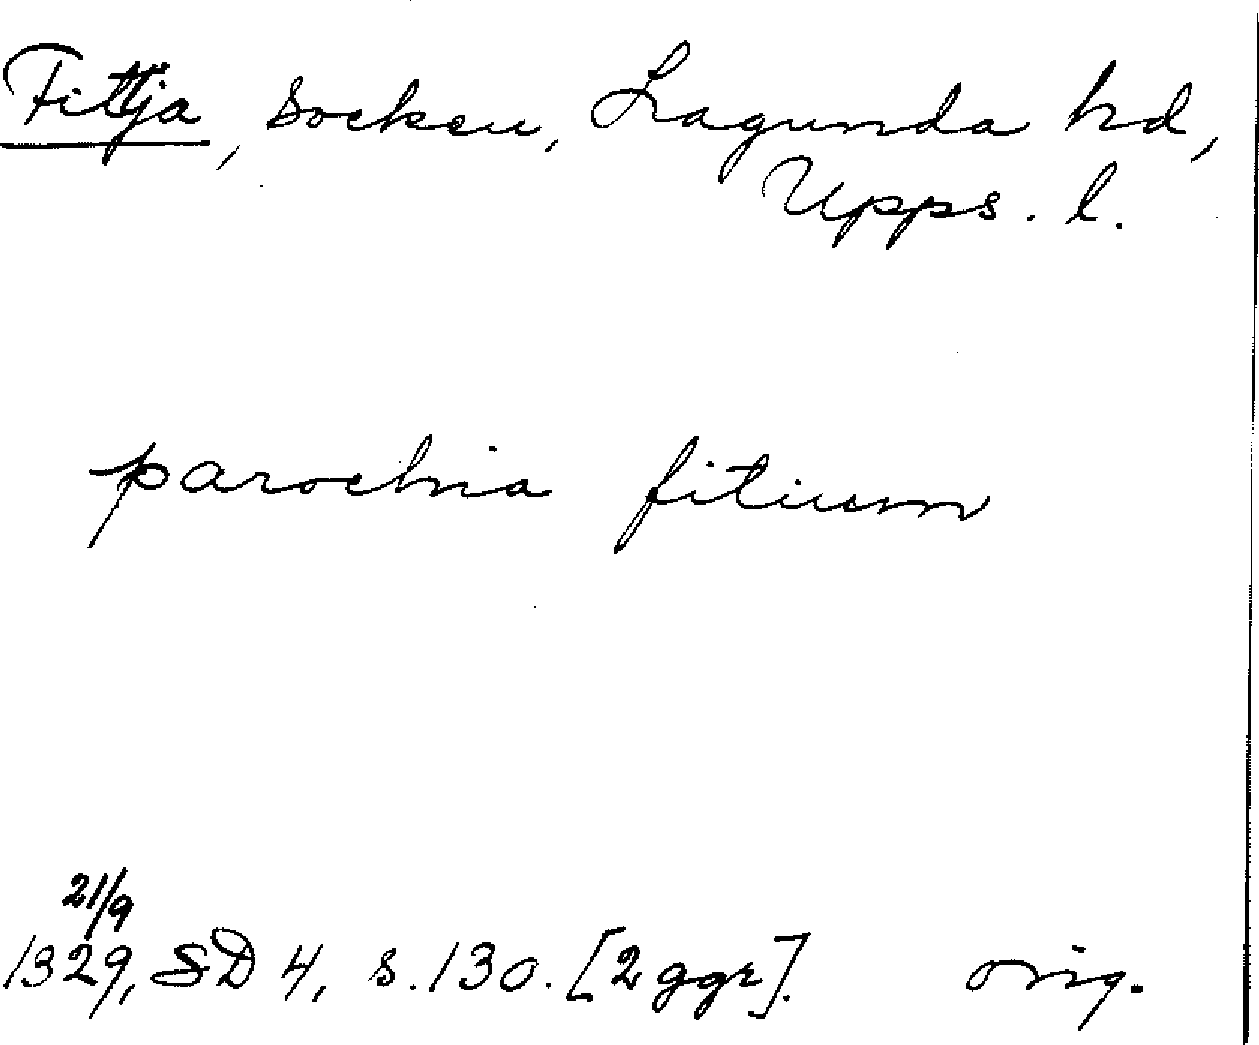 Fittja, socken, Lagunda hd,
Upps. l.
parochia fitium
21/9
1329, SD 4, s. 130. [2 ggr]. orig.